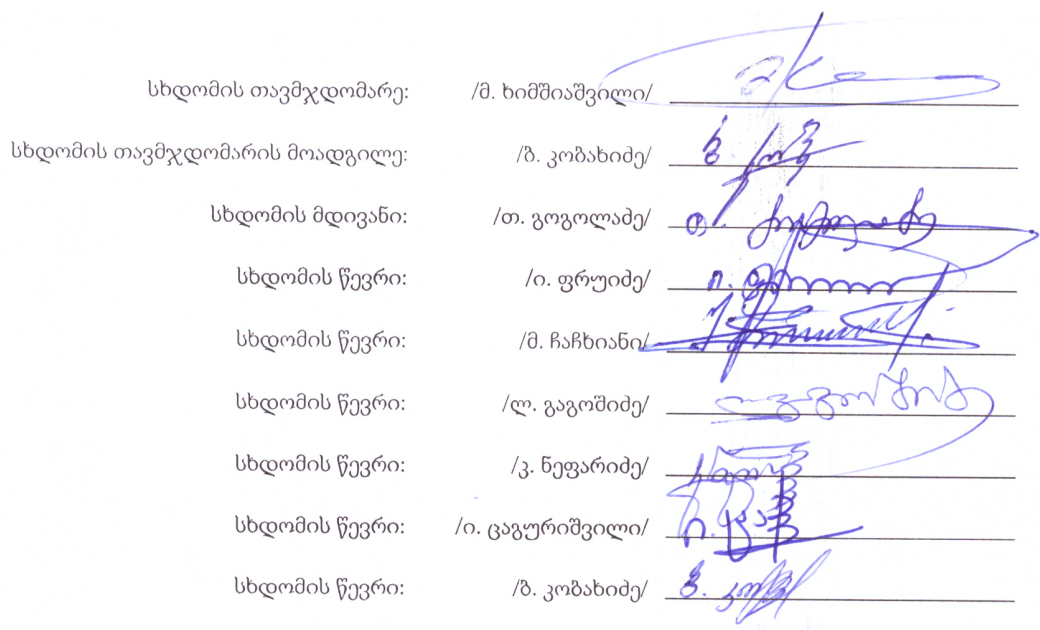 სხდომის თავმჯდომარე: /მ. ხიმშიაშვილი/
სხდომის თავმჯდომარის მოადგილე: /ბ. კობახიძე/
სხდომის მდივანი: /თ. გოგოლაძე/
სხდომის წევრი: /ი. ფრუიძე/
სხდომის წევრი: /მ. ჩაჩხიანი/
სხდომის წევრი: /ლ. გაგოშიძე/
სხდომის წევრი: /კ. ნეფარიძე/
სხდომის წევრი: /ი. ცაგურიშვილი/
სხდომის წევრი: /ბ. კობახიძე/